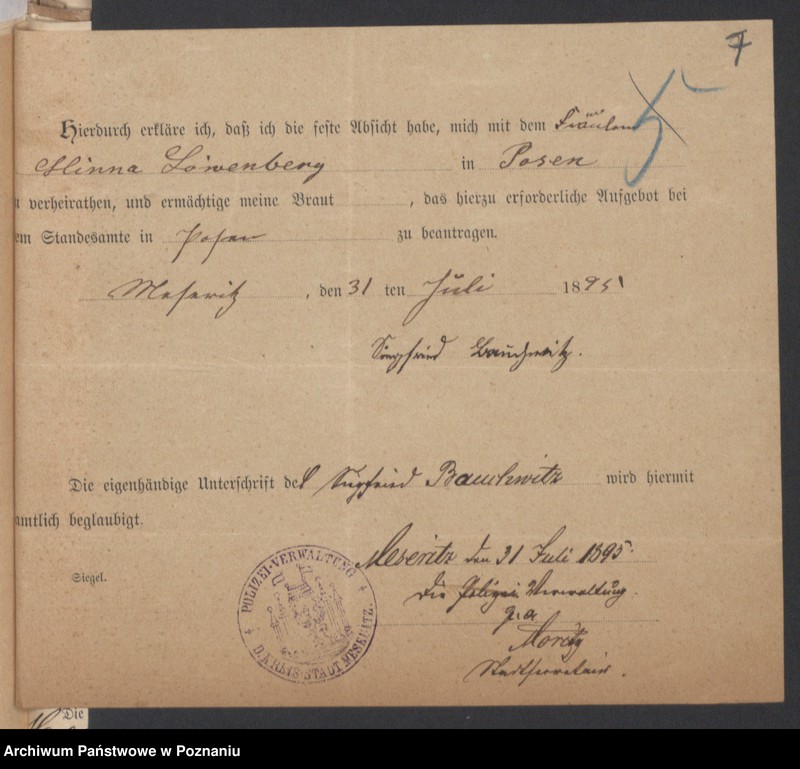 7
5
Hierdurch erkläre ich, daß ich die feste Absicht habe, mich mit dem Fräulein
Minna Löwenberg in Posen
verheirathen, und ermächtige meine Braut , das hierzu erforderliche Aufgebot bei
em Standesamte in Posen zu beantragen.
Meseritz , den 31 ten Juli 1895
Siegfried Bauchwitz.
Die eigenhändige Unterschrift des Siegfried Bauchwitz wird hiermit
amtlich beglaubigt.
Meseritz den 31 Juli 1895.
Siegel.
Die Polizei Verwaltung.
POLIZEI-VERWALTUNG
D. KREIS-STADT MESERITZ.
Moritz
Stadtsecretair.
Die
Archiwum Państwowe w Poznaniu